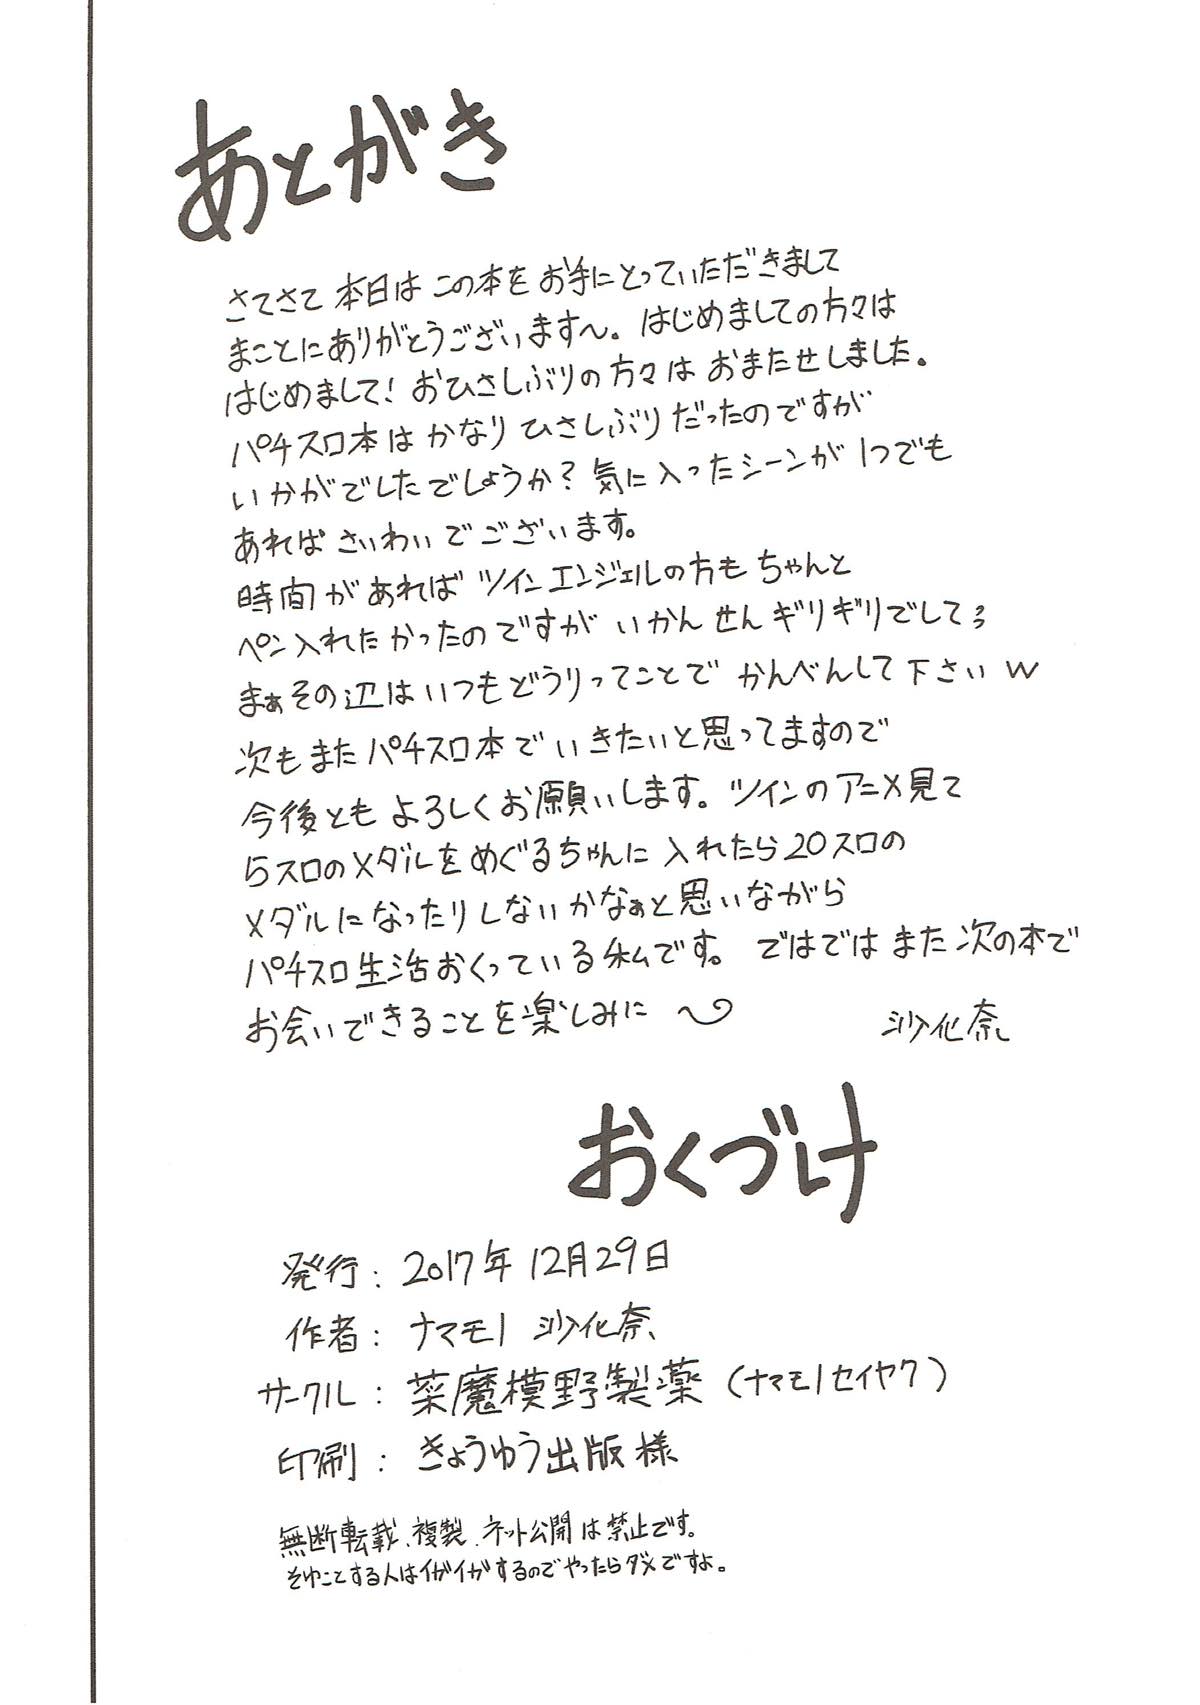 あとがき
さてさて本日はこの本をお手にとっていただきまして
まことにありがとうございます〜。はじめましての方々は
はじめまして！おひさしぶりの方々はおまたせしました。
パチスロ本はかなりひさしぶりだったのですが
いかがでしたでしょうか？気に入ったシーンが1つでも
あればさいわいでございます。
時間があればツインエンジェルの方もちゃんと
ペン入れたかったのですがいかんせんギリギリでして
まぁその辺はいつもどうりってことでかんべんして下さいw
次もまたパチスロ本でいきたいと思ってますので
今後ともよろしくお願いします。ツインのアニメ見て
5スロのメダルをめぐるちゃんに入れたら20スロの
メダルになったりしないかなぁと思いながら
パチスロ生活おくっている私です。ではではまた次の本で
お会いできることを楽しみに〜
沙化奈
おくづけ
発行：2017年12月29日
作者：ナマモノ 沙化奈
サークル：菜魔模野製薬（ナマモノセイヤク）
印刷：きょうゆう出版様
無断転載、複製、ネット公開は禁止です。
そゆことする人はイガイガするのでやったらダメですよ。